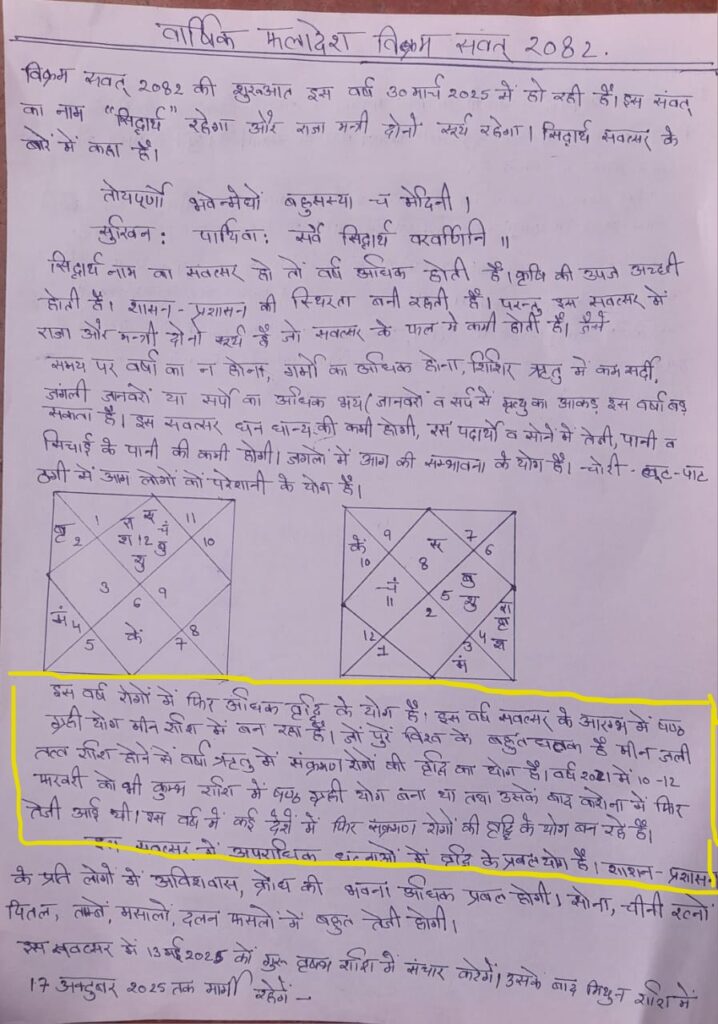 वार्षिक फलादेश विक्रम संवत् 2082.
विक्रम सवत् 2082 की शुरुआत इस वर्ष 30 मार्च 2025 से हो रही है। इस संवत्
का नाम "सिद्धार्थ" रहेगा और राजा मन्त्री दोनो सूर्य रहेगा। सिद्धार्थ सवत्सर के
बारे में कहा है।
तोयपूर्णो भवेन्मेघो बहुसस्या च मेदिनी।
सुखिन: पार्थिवा: सर्वे सिद्धार्थ वरवर्णिनि॥
सिद्धार्थ नाम का सवत्सर हो तो वर्षा अधिक होती है। कृषि की उपज अच्छी
होती है। शासन-प्रशासन की स्थिरता बनी रहती है। परन्तु इस सवत्सर में
राजा और मन्त्री दोनो सूर्य है जो सवत्सर के फल मे कमी होती है। जैसे
समय पर वर्षा का न होना, गर्मी का अधिक होना, शिशिर ऋतु में कम सर्दी,
जंगली जानवरों या सर्पो का अधिक भय (जानवरों व सर्प से मृत्यु का आकड़ इस वर्षा बड़
सकता है। इस सवत्सर धन धान्य की कमी होगी, रस पदार्थो व सोने में तेजी, पानी व
सिचाई के पानी की कमी होगी। जगलो में आग की सम्भावना के योग है। चोरी-लूट-पाट
ठगी से आम लोगों को परेशानी के योग है।
बृ 2 1 रा सू श 12 चं बु शु 11 10
3 6 9
मं 4 5 के 7 8
के 10 9 स 8 7 6
चं 11 2 5 बु शु
12 1 3 मं 4 रा बृ श
इस वर्ष रोगों में फिर अधिक वृद्धि के योग है। इस वर्ष सवत्सर के आरम्भ में षण्ठ
ग्रही योग मीन राशि में बन रहा है। जो पुरे विश्व के बहुत घातक है मीन जली
तत्व राशि होने से वर्षा ऋतु में संक्रमण रोगों की वृद्धि का योग है। वर्ष 2021 मे 10-12
फरवरी को भी कुम्भ राशि में षण्ठ ग्रही योग बना था तथा उसके बाद करोना में फिर
तेजी आई थी। इस वर्ष में कई देशों में फिर संक्रमण रोगों की वृद्धि के योग बन रहे है।
इस सवत्सर में अपराधिक घटनाओं में वृद्धि के प्रबल योग है। शाशन-प्रशासन
के प्रति लोगों में अविशवास, क्रोध की भवना अधिक प्रबल होगी। सोना, चीनी रत्नों
पितल, ताम्बें, मसालों, दलन फसलों में बहुत तेजी होगी।
इस सवत्सर में 13 मई 2025 को गुरू वृषभ राशि में संचार करेगें। उसके बाद मिथुन राशि में
17 अक्टुबर 2025 तक मार्गी रहेगें –